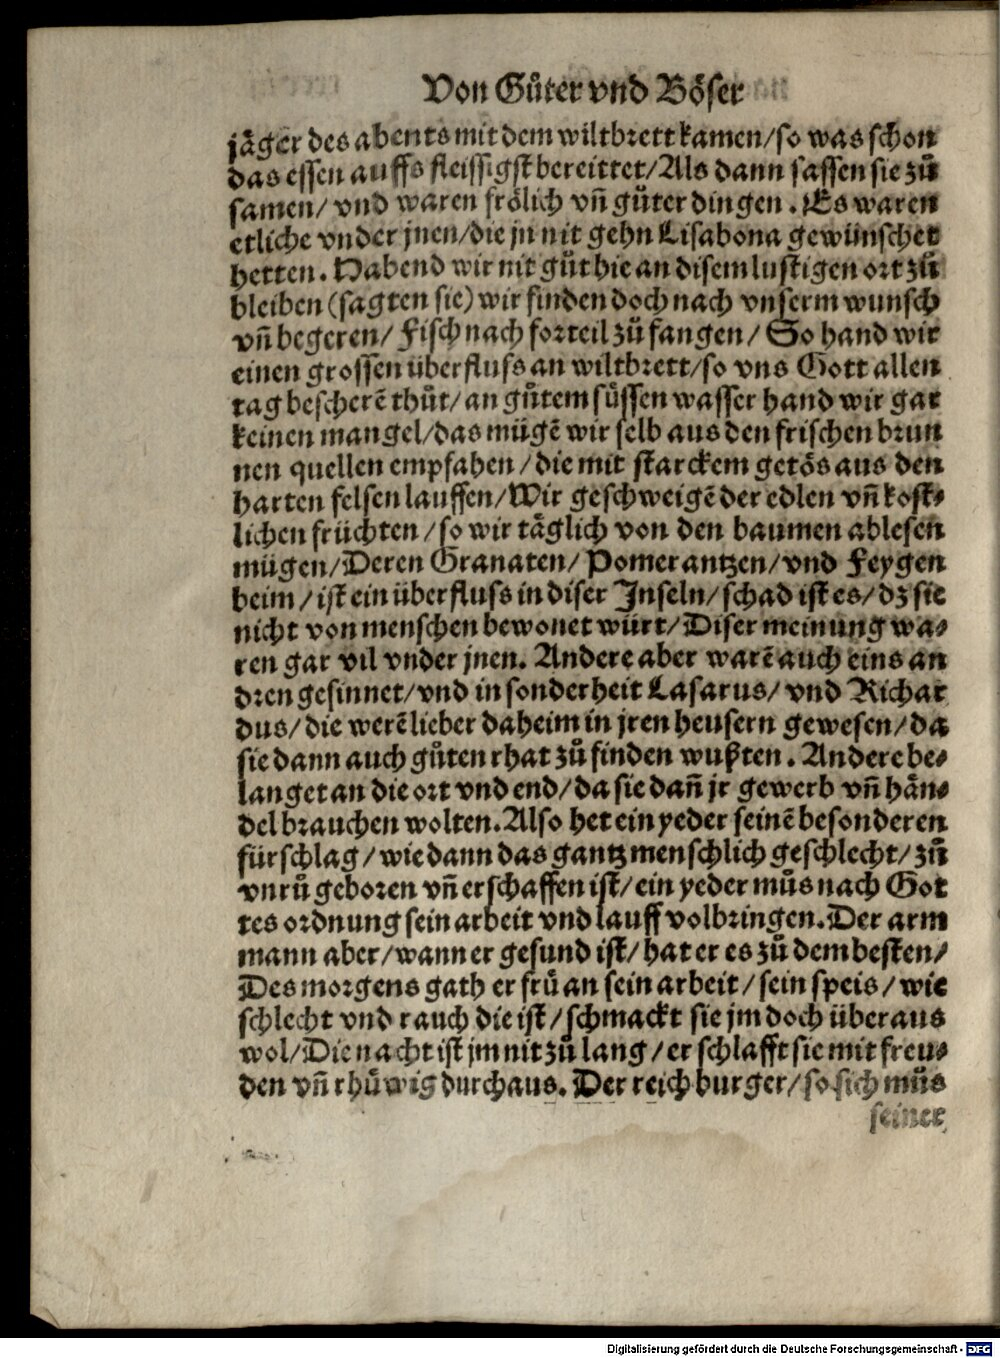 Von Gůter vnd Böser
jäger des abents mit dem wiltbrett kamen/so was schon
das essen auffs fleissigst bereittet/Als dann sassen sie zů
samen/ vnd waren frölich vñ gůter dingen. Es waren
etliche vnder jnen/die jn nit gehn Lisabona gewünschet
hetten. Habend wir nit gůt hie an disem lustigen ort zů
bleiben (sagten sie) wir finden doch nach vnserm wunsch
vñ begeren/ Fisch nach forteil zů fangen/ So hand wir
einen grossen überfluss an wiltbrett/so vns Gott allen
tag bescherẽ thůt/ an gůtem süssen wasser hand wir gar
keinen mangel/das mügẽ wir selb aus den frischen brun
nen quellen empfahen/die mit starckem getös aus den
harten felsen lauffen/Wir geschweigẽ der edlen vñ kost⸗
lichen früchten/so wir täglich von den baumen ablesen
mügen/Deren Granaten/Pomerantzen/vnd Feygen
beim/ist ein überfluss in diser Inseln/schad ist es/dz sie
nicht von menschen bewonet würt/Diser meinung wa⸗
ren gar vil vnder jnen. Andere aber warẽ auch eins an
dren gesinnet/vnd in sonderheit Lasarus/ vnd Richar
dus/die werẽ lieber daheim in jren heusern gewesen/da
sie dann auch gůten rhat zů finden wußten. Andere be⸗
langet an die ort vnd end/da sie dañ jr gewerb vñ hän⸗
del brauchen wolten. Also het ein yeder seinẽ besonderen
fürschlag/wie dann das gantz menschlich geschlecht/zů
vnrů geboren vñ erschaffen ist/ein yeder můs nach Got
tes ordnung sein arbeit vnd lauff volbringen. Der arm
mann aber/wann er gesund ist/hat er es zů dem besten/
Des morgens gath er frů an sein arbeit/sein speis/wie
schlecht vnd rauch die ist/schmackt sie jm doch überaus
wol/Die nacht ist jm nit zů lang/er schlafft sie mit freu⸗
den vñ rhůwig durchaus. Der reich burger/so sich můs
seiner
Digitalisierung gefördert durch die Deutsche Forschungsgemeinschaft - DFG